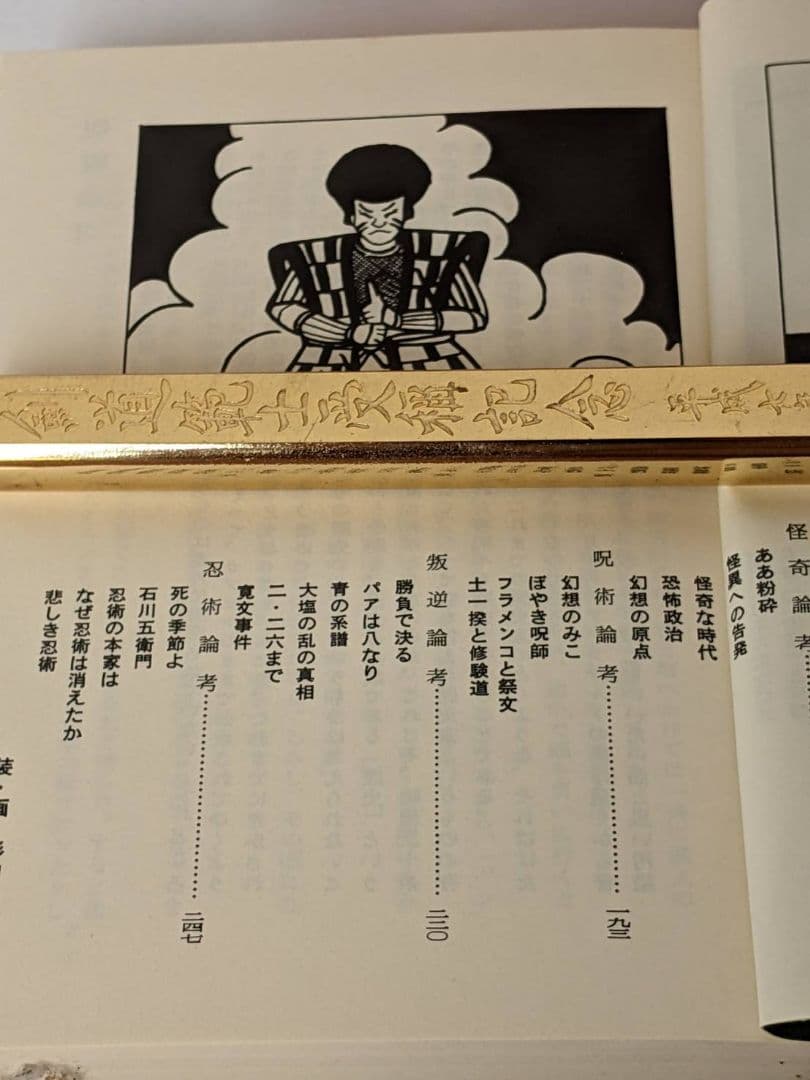 剣道範士受称記念 平成
怪奇論考
ああ粉砕
怪異への告発
怪奇な時代
恐怖政治
幻想の原点
呪術論考……一九三
幻想のみこ
ぼやき呪師
フラメンコと祭文
土一揆と修験道
叛逆論考……二二〇
勝負で決る
パアは八なり
青の系譜
大塩の乱の真相
二・二六まで
寛文事件
忍術論考……二四七
死の季節よ
石川五衛門
忍術の本家は
なぜ忍術は消えたか
悲しき忍術
装・画